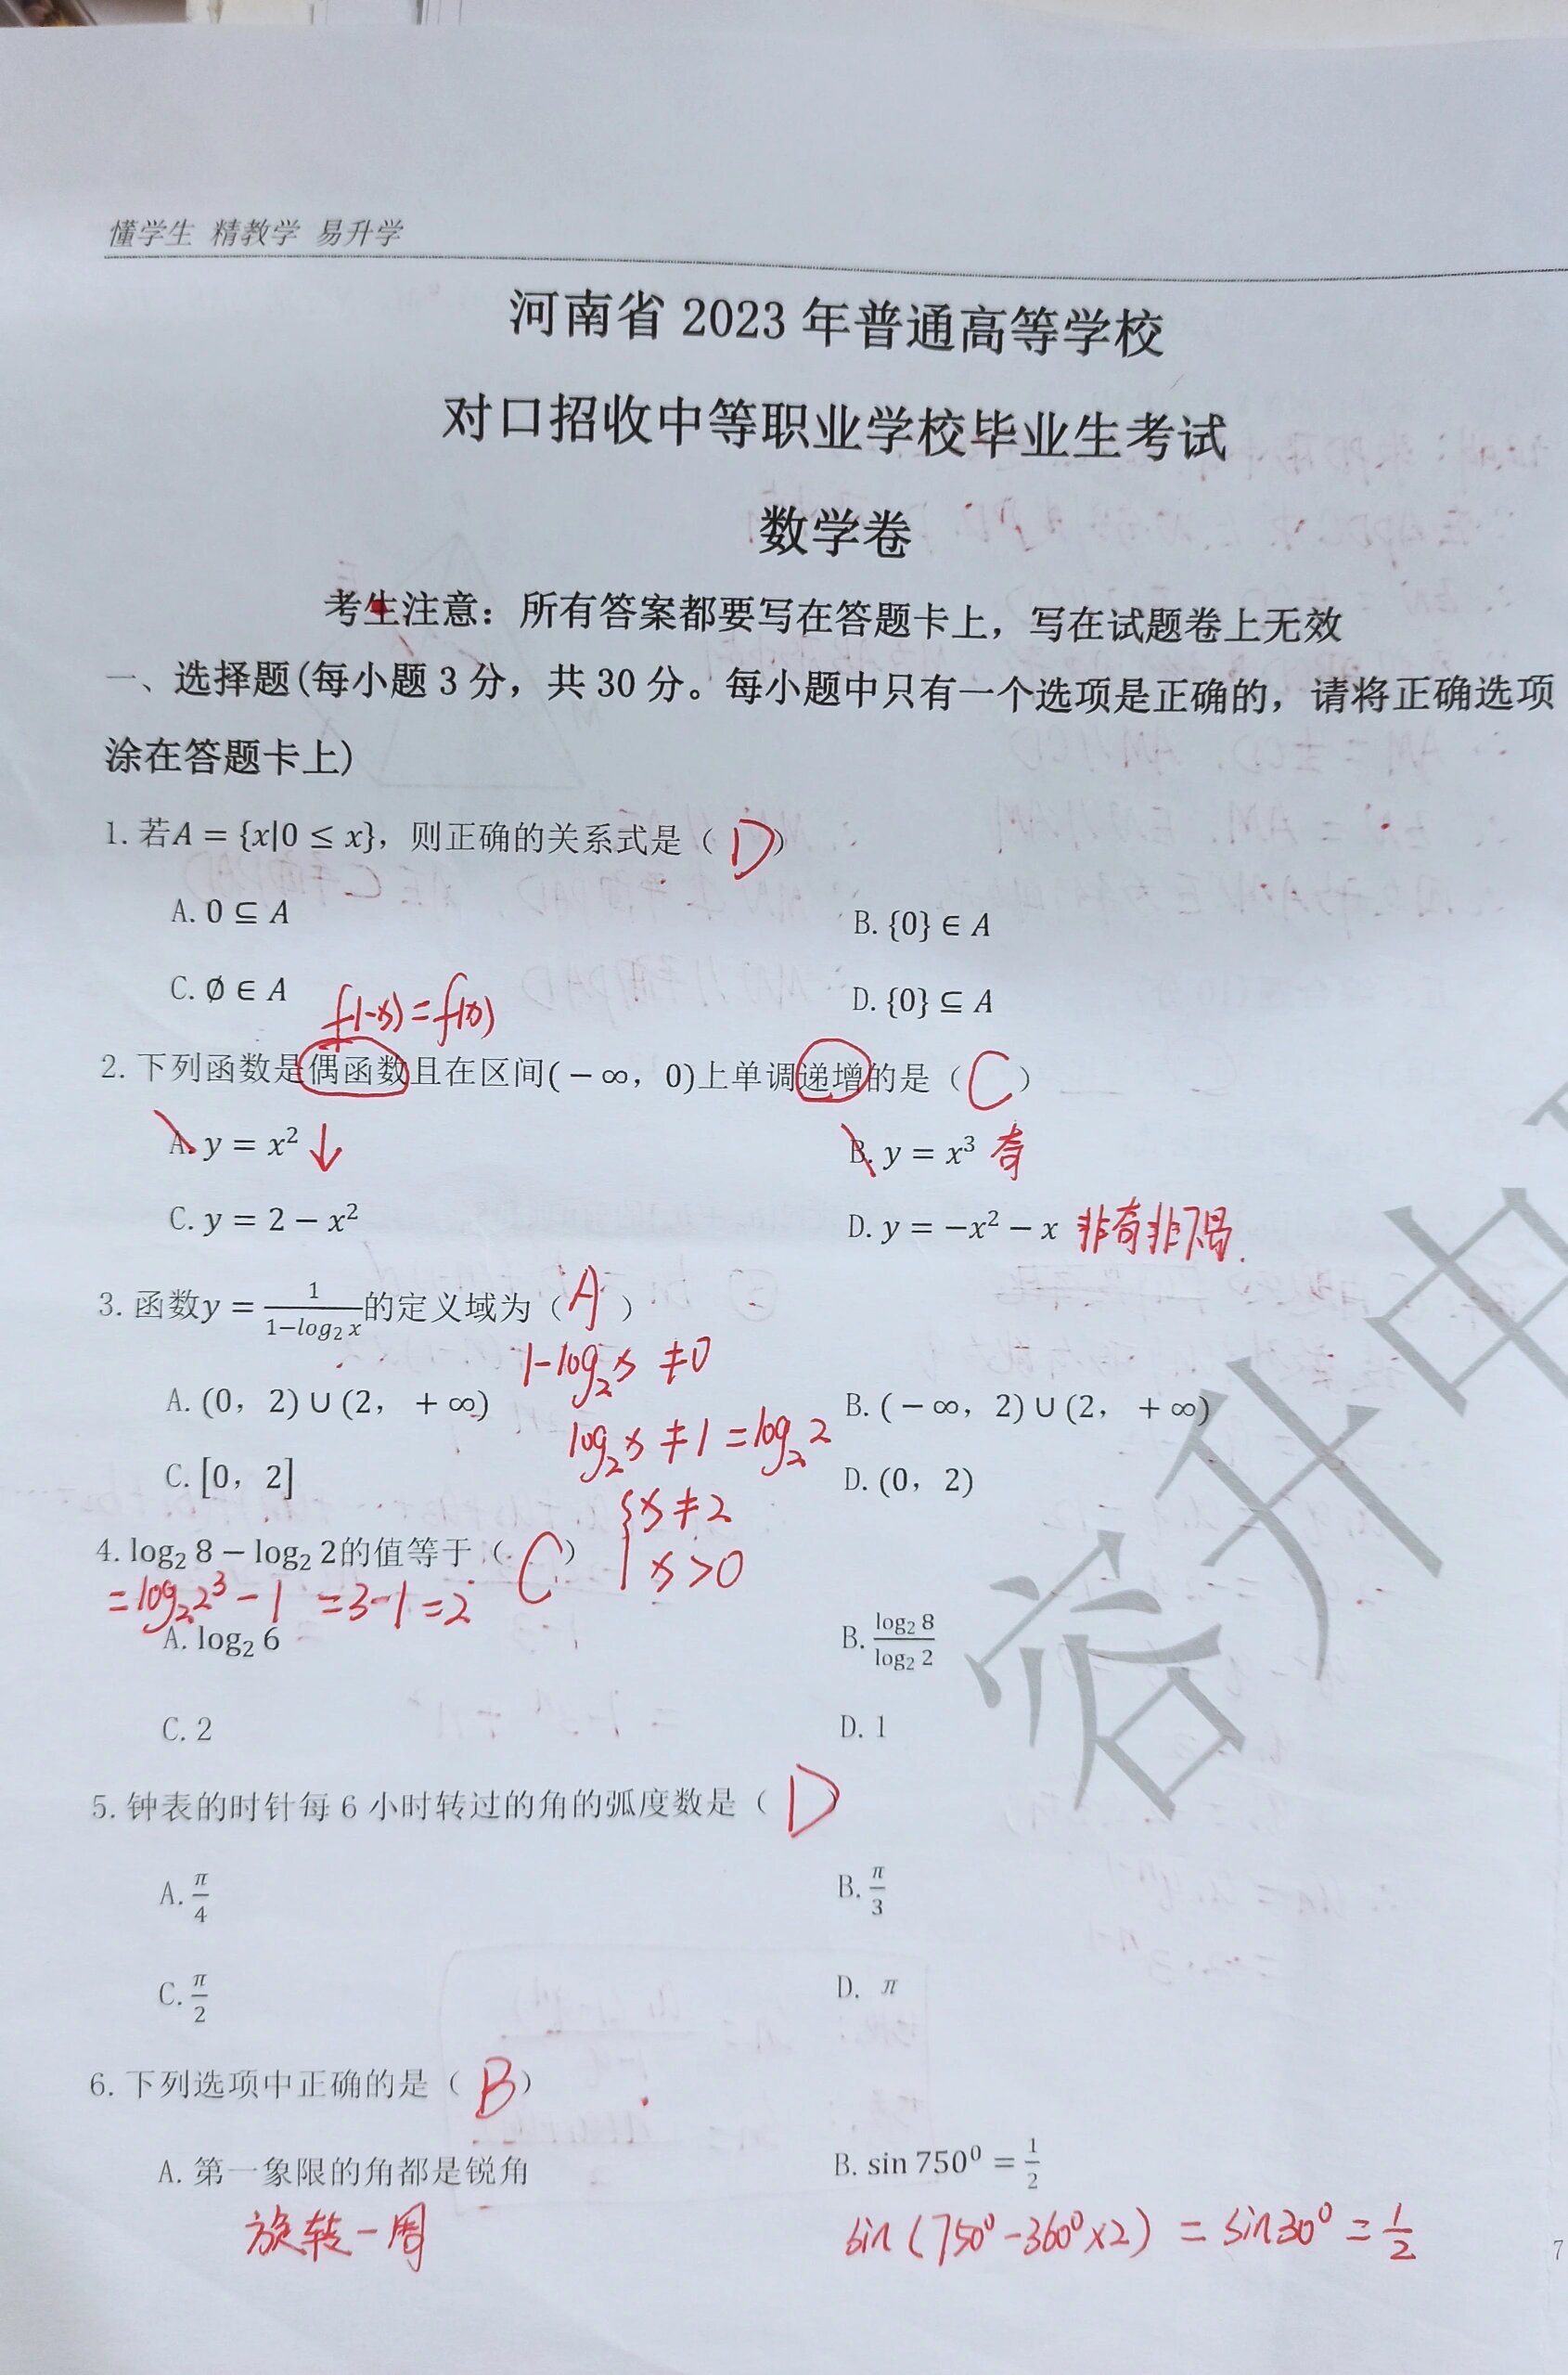 懂学生 精教学 易升学
河南省 2023 年普通高等学校
对口招收中等职业学校毕业生考试
数学卷
考生注意：所有答案都要写在答题卡上，写在试题卷上无效
一、选择题(每小题 3 分，共 30 分。每小题中只有一个选项是正确的，请将正确选项
涂在答题卡上)
1. 若A = {x|0 ≤ x}，则正确的关系式是（ D ）
A. 0 ⊆ A
B. {0} ∈ A
C. ∅ ∈ A
D. {0} ⊆ A
f(-x) = f(x)
2. 下列函数是偶函数且在区间(－∞，0)上单调递增的是（ C ）
A. y = x² ↓
B. y = x³ 奇
C. y = 2 − x²
D. y = −x² − x 非奇非偶.
3. 函数y = 1/(1−log₂ x)的定义域为（ A ）
1-log₂x ≠ 0
A. (0，2) ∪ (2，+∞)
B. (－∞，2) ∪ (2，+∞)
log₂x ≠ 1 = log₂2
C. [0，2]
D. (0，2)
{x ≠ 2
x > 0
4. log₂ 8 − log₂ 2的值等于（ C ）
= log₂2³ - 1 = 3-1 = 2
A. log₂ 6
B. log₂ 8/log₂ 2
C. 2
D. 1
5. 钟表的时针每 6 小时转过的角的弧度数是（ D ）
A. π/4
B. π/3
C. π/2
D. π
6. 下列选项中正确的是（ B ）
A. 第一象限的角都是锐角
B. sin 750⁰ = 1/2
旋转一周
sin (750⁰-360⁰×2) = sin30⁰ = 1/2
7